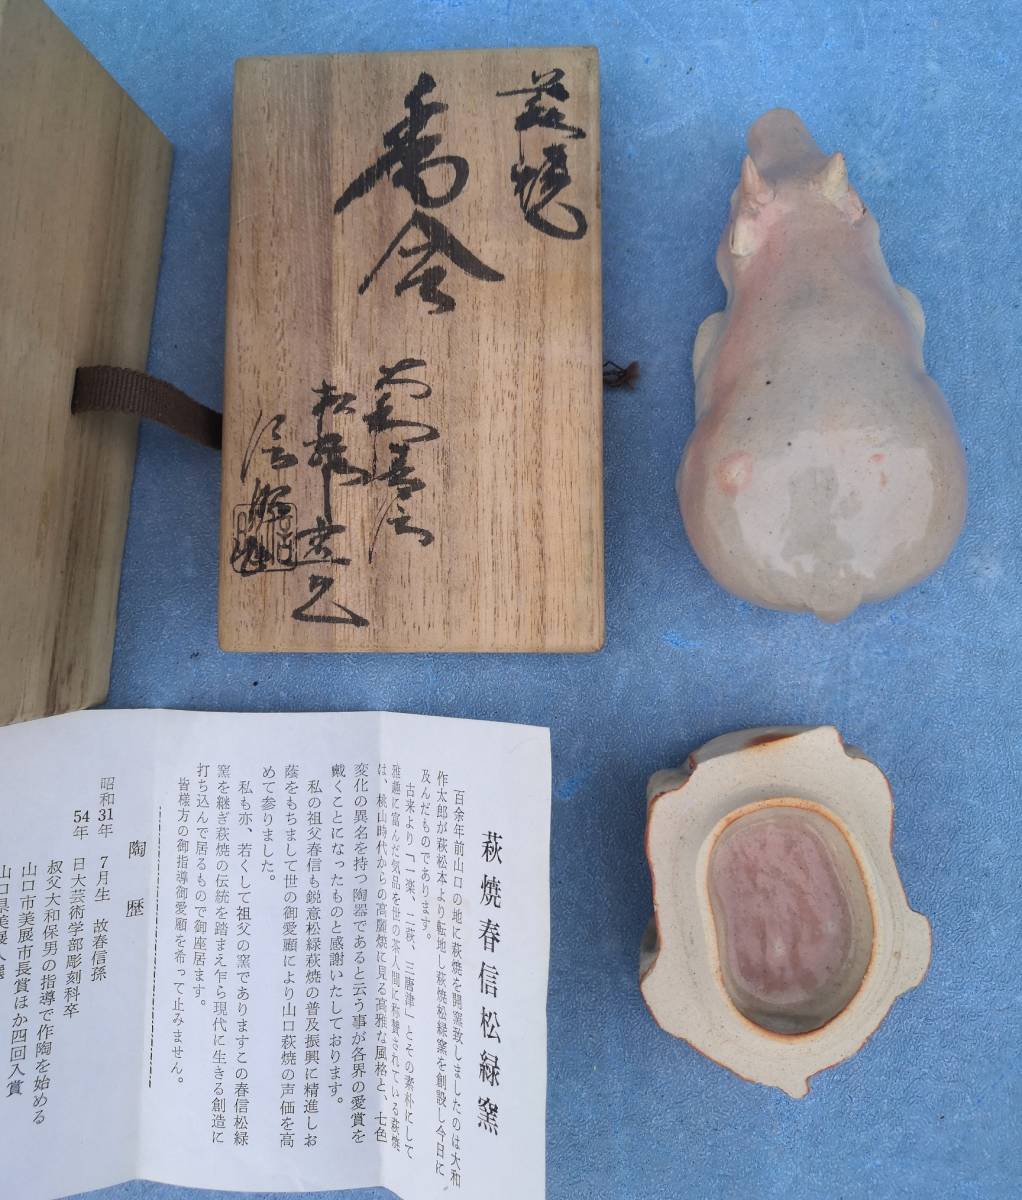 萩焼
香合
大和春信
松緑窯
信
萩焼春信松緑窯
百余年前山口の地に萩焼を開窯致しましたのは大和
作太郎が萩松本より転地し萩焼松緑窯を創設し今日に
及んだものであります。
古来より「一楽、二萩、三唐津」とその素朴にして
雅趣に富んだ気品を世の茶人間に称賛されている萩焼
は、桃山時代からの高麗焼に見る高雅な風格と、七色
変化の異名を持つ陶器であると云う事が各界の愛賞を
戴くことになったものと感謝いたしております。
私の祖父春信も鋭意松緑萩焼の普及振興に精進しお
蔭をもちまして世の御愛顧により山口萩焼の声価を高
めて参りました。
私も亦、若くして祖父の窯でありますこの春信松緑
窯を継ぎ萩焼の伝統を踏まえ乍ら現代に生きる創造に
打ち込んで居るもので御座居ます。
皆様方の御指導御愛顧を希って止みません。
陶歴
昭和31年 7月生 故春信孫
54年 日大芸術学部彫刻科卒
叔父大和保男の指導で作陶を始める
山口市美展市長賞ほか四回入賞
山口県美展入選